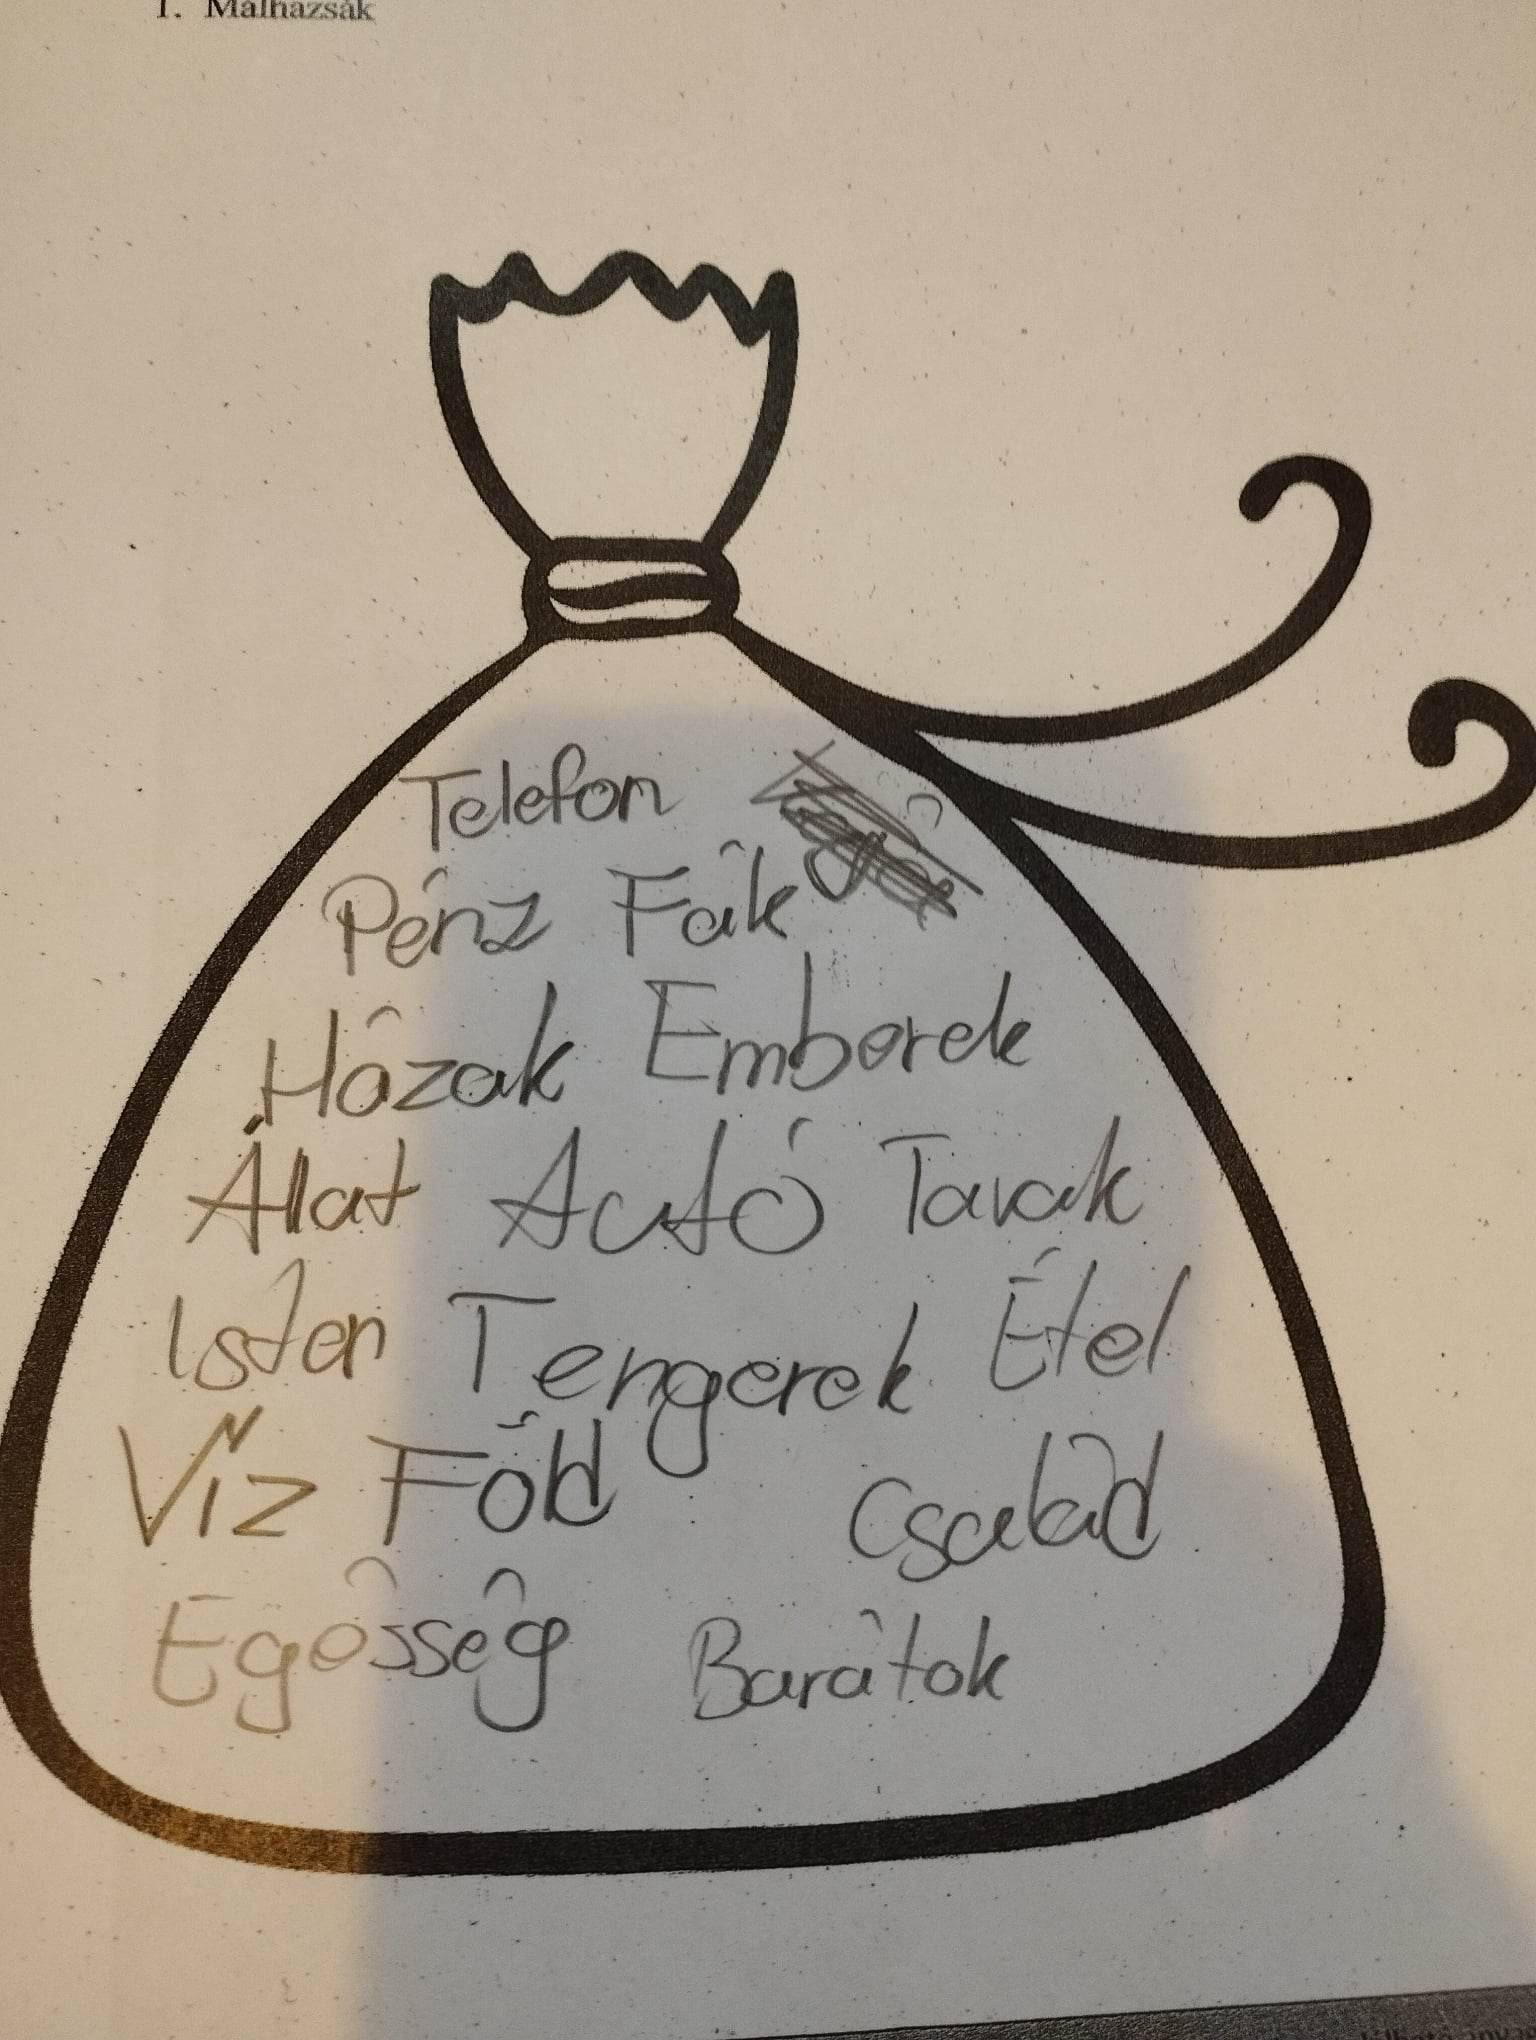 1. Málhazsák
Telefon
Pénz Fák
Házak Emberek
Állat Autó Tavak
Isten Tengerek Étel
Víz Föld Család
Egésség Barátok